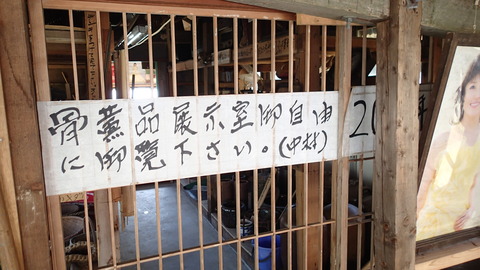 骨董品展示室御自由
に御覧下さい。(中村)
20